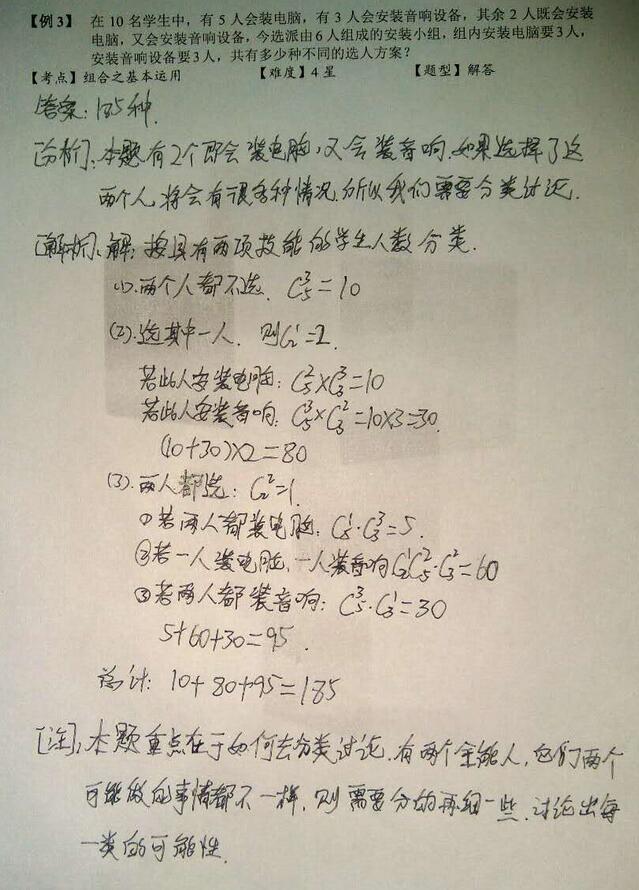 【例3】 在 10 名学生中，有 5 人会装电脑，有 3 人会安装音响设备，其余 2 人既会安装
电脑，又会安装音响设备，今选派由 6 人组成的安装小组，组内安装电脑要 3 人，
安装音响设备要 3 人，共有多少种不同的选人方案？
【考点】组合之基本运用 【难度】4 星 【题型】解答
答案：185种.
[分析]：本题有2个即会装电脑，又会装音响，如果选择了这
两个人，将会有很多种情况，所以我们需要分类讨论.
[解析]：解：按具有两项技能的学生人数分类.
(1).两个人都不选. C₅³=10
(2).选其中一人. 则C₂¹=2.
若此人安装电脑：C₅²×C₃³=10
若此人安装音响：C₅³×C₃²=10×3=30.
(10+30)×2=80
(3).两人都选：C₂²=1.
①若两人都装电脑：C₅¹·C₃³=5.
②若一人装电脑，一人装音响C₂¹C₅²·C₃²=60
③若两人都装音响：C₅³·C₃¹=30
5+60+30=95.
总计：10+80+95=185
[注]：本题重点在于如何去分类讨论，有两个全能人，他们两个
可能做的事情都不一样，则需要分的再细一些，讨论出每
一类的可能性.